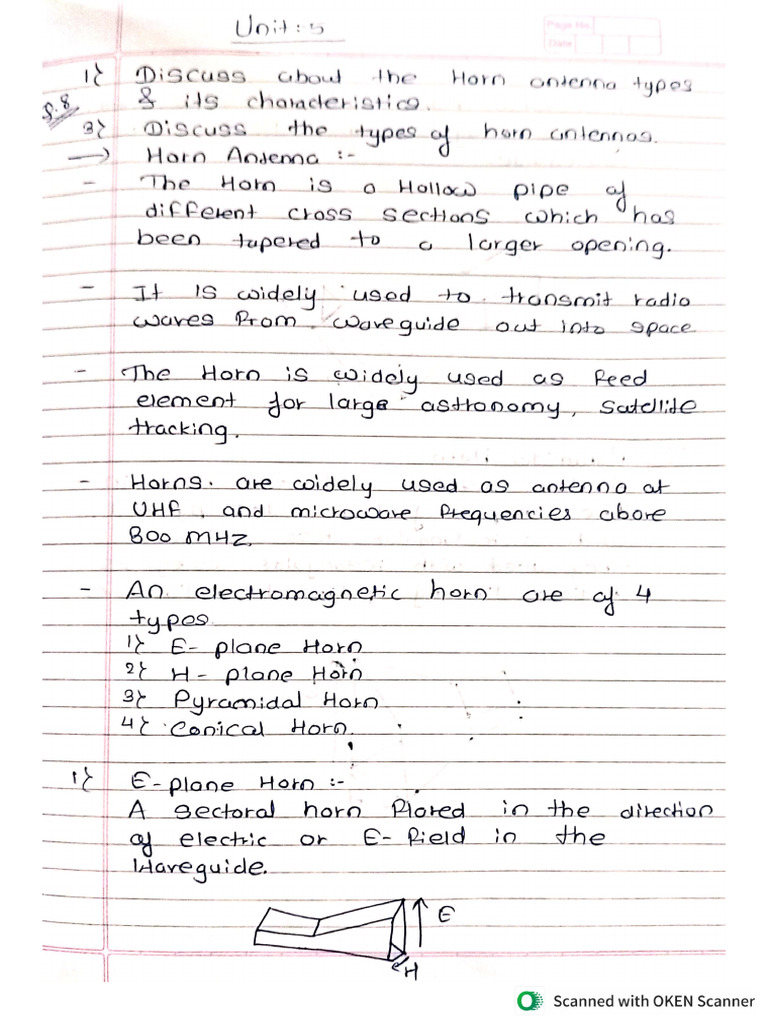 Unit: 5
Page No.
Date
1} Discuss about the Horn antenna types
& its characteristics.
Q.8
3} Discuss the types of horn antennas.
→ Horn Antenna :-
- The Horn is a Hollow pipe of
different cross sections which has
been tapered to a larger opening.
- It is widely used to transmit radio
waves from waveguide out into space
- The Horn is widely used as feed
element for large astronomy, satellite
tracking.
- Horns are widely used as antenna at
UHF and microwave frequencies above
800 MHZ.
- An electromagnetic horn are of 4
types
1} E- plane Horn
2} H- plane Horn
3} Pyramidal Horn
4} Conical Horn.
1} E-plane Horn :-
A sectoral horn flared in the direction
of electric or E-field in the
Waveguide.
E
H
Scanned with OKEN Scanner